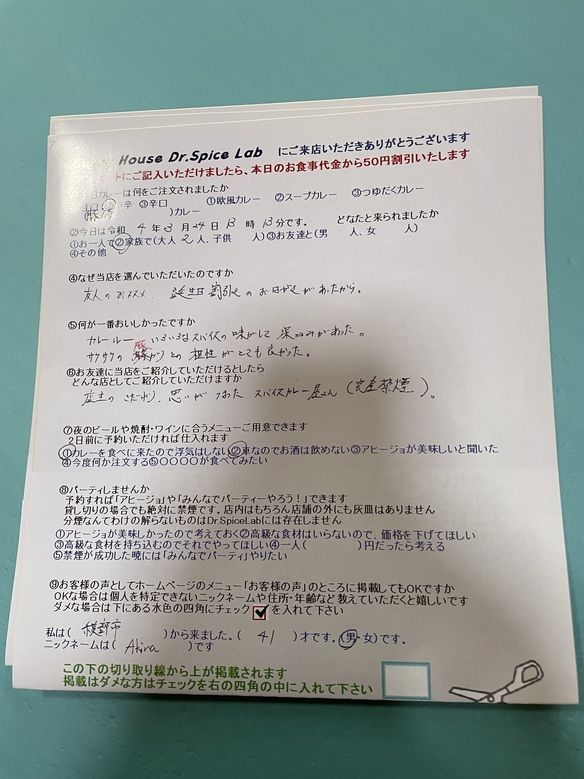 House Dr.Spice Lab にご来店いただきありがとうございます
ケートにご記入いただけましたら、本日のお食事代金から50円割引いたします
カレーは何をご注文されましたか
中辛 ③辛口 ①欧風カレー ②スープカレー ③つゆだくカレー
)カレー
②今日は令和 4 年 3 月 24 日 13 時 13 分です。 どなたと来られましたか
①お一人で②家族で(大人 2 人、子供 人)③お友達と(男 人、女 人)
④その他
④なぜ当店を選んでいただいたのですか
友人のおススメ、誕生日割引のおはがきがあったから。
⑤何が一番おいしかったですか
カレールー いろいろなスパイスの味がして深みがあった。
サクサクの との相性がとても良かった。
⑥お友達に当店をご紹介していただけるとしたら
どんな店としてご紹介していただけますか
店主のこだわり、思いがつまったスパイスカレー屋さん(完全禁煙)。
⑦夜のビールや焼酎・ワインに合うメニューご用意できます
2日前に予約いただければ仕入れます
①カレーを食べに来たので浮気はしない②車なのでお酒は飲めない③アヒージョが美味しいと聞いた
④今度何か注文する⑤〇〇〇〇が食べてみたい
⑧パーティしませんか
予約すれば「アヒージョ」や「みんなでパーティーやろう!」できます
貸し切りの場合でも絶対に禁煙です。店内はもちろん店舗の外にも灰皿はありません
分煙なんてわけの解らないものはDr.SpiceLabには存在しません
①アヒージョが美味しかったので考えておく②高級な食材はいらないので、価格を下げてほしい
③高級な食材を持ち込むのでそれでやってほしい④一人( )円だったら考える
⑤禁煙が成功した暁には「みんなでパーティ」やりたい
⑨お客様の声としてホームページのメニュー「お客様の声」のところに掲載してもOKですか
OKな場合は個人を特定できないニックネームや住所・年齢など教えていただくと嬉しいです
ダメな場合は下にある水色の四角にチェック を入れて下さい
私は( 綾部市 )から来ました。( 41 )才です。(男・女)です。
ニックネームは( Akira )です
この下の切り取り線から上が掲載されます
掲載はダメな方はチェックを右の四角の中に入れて下さい